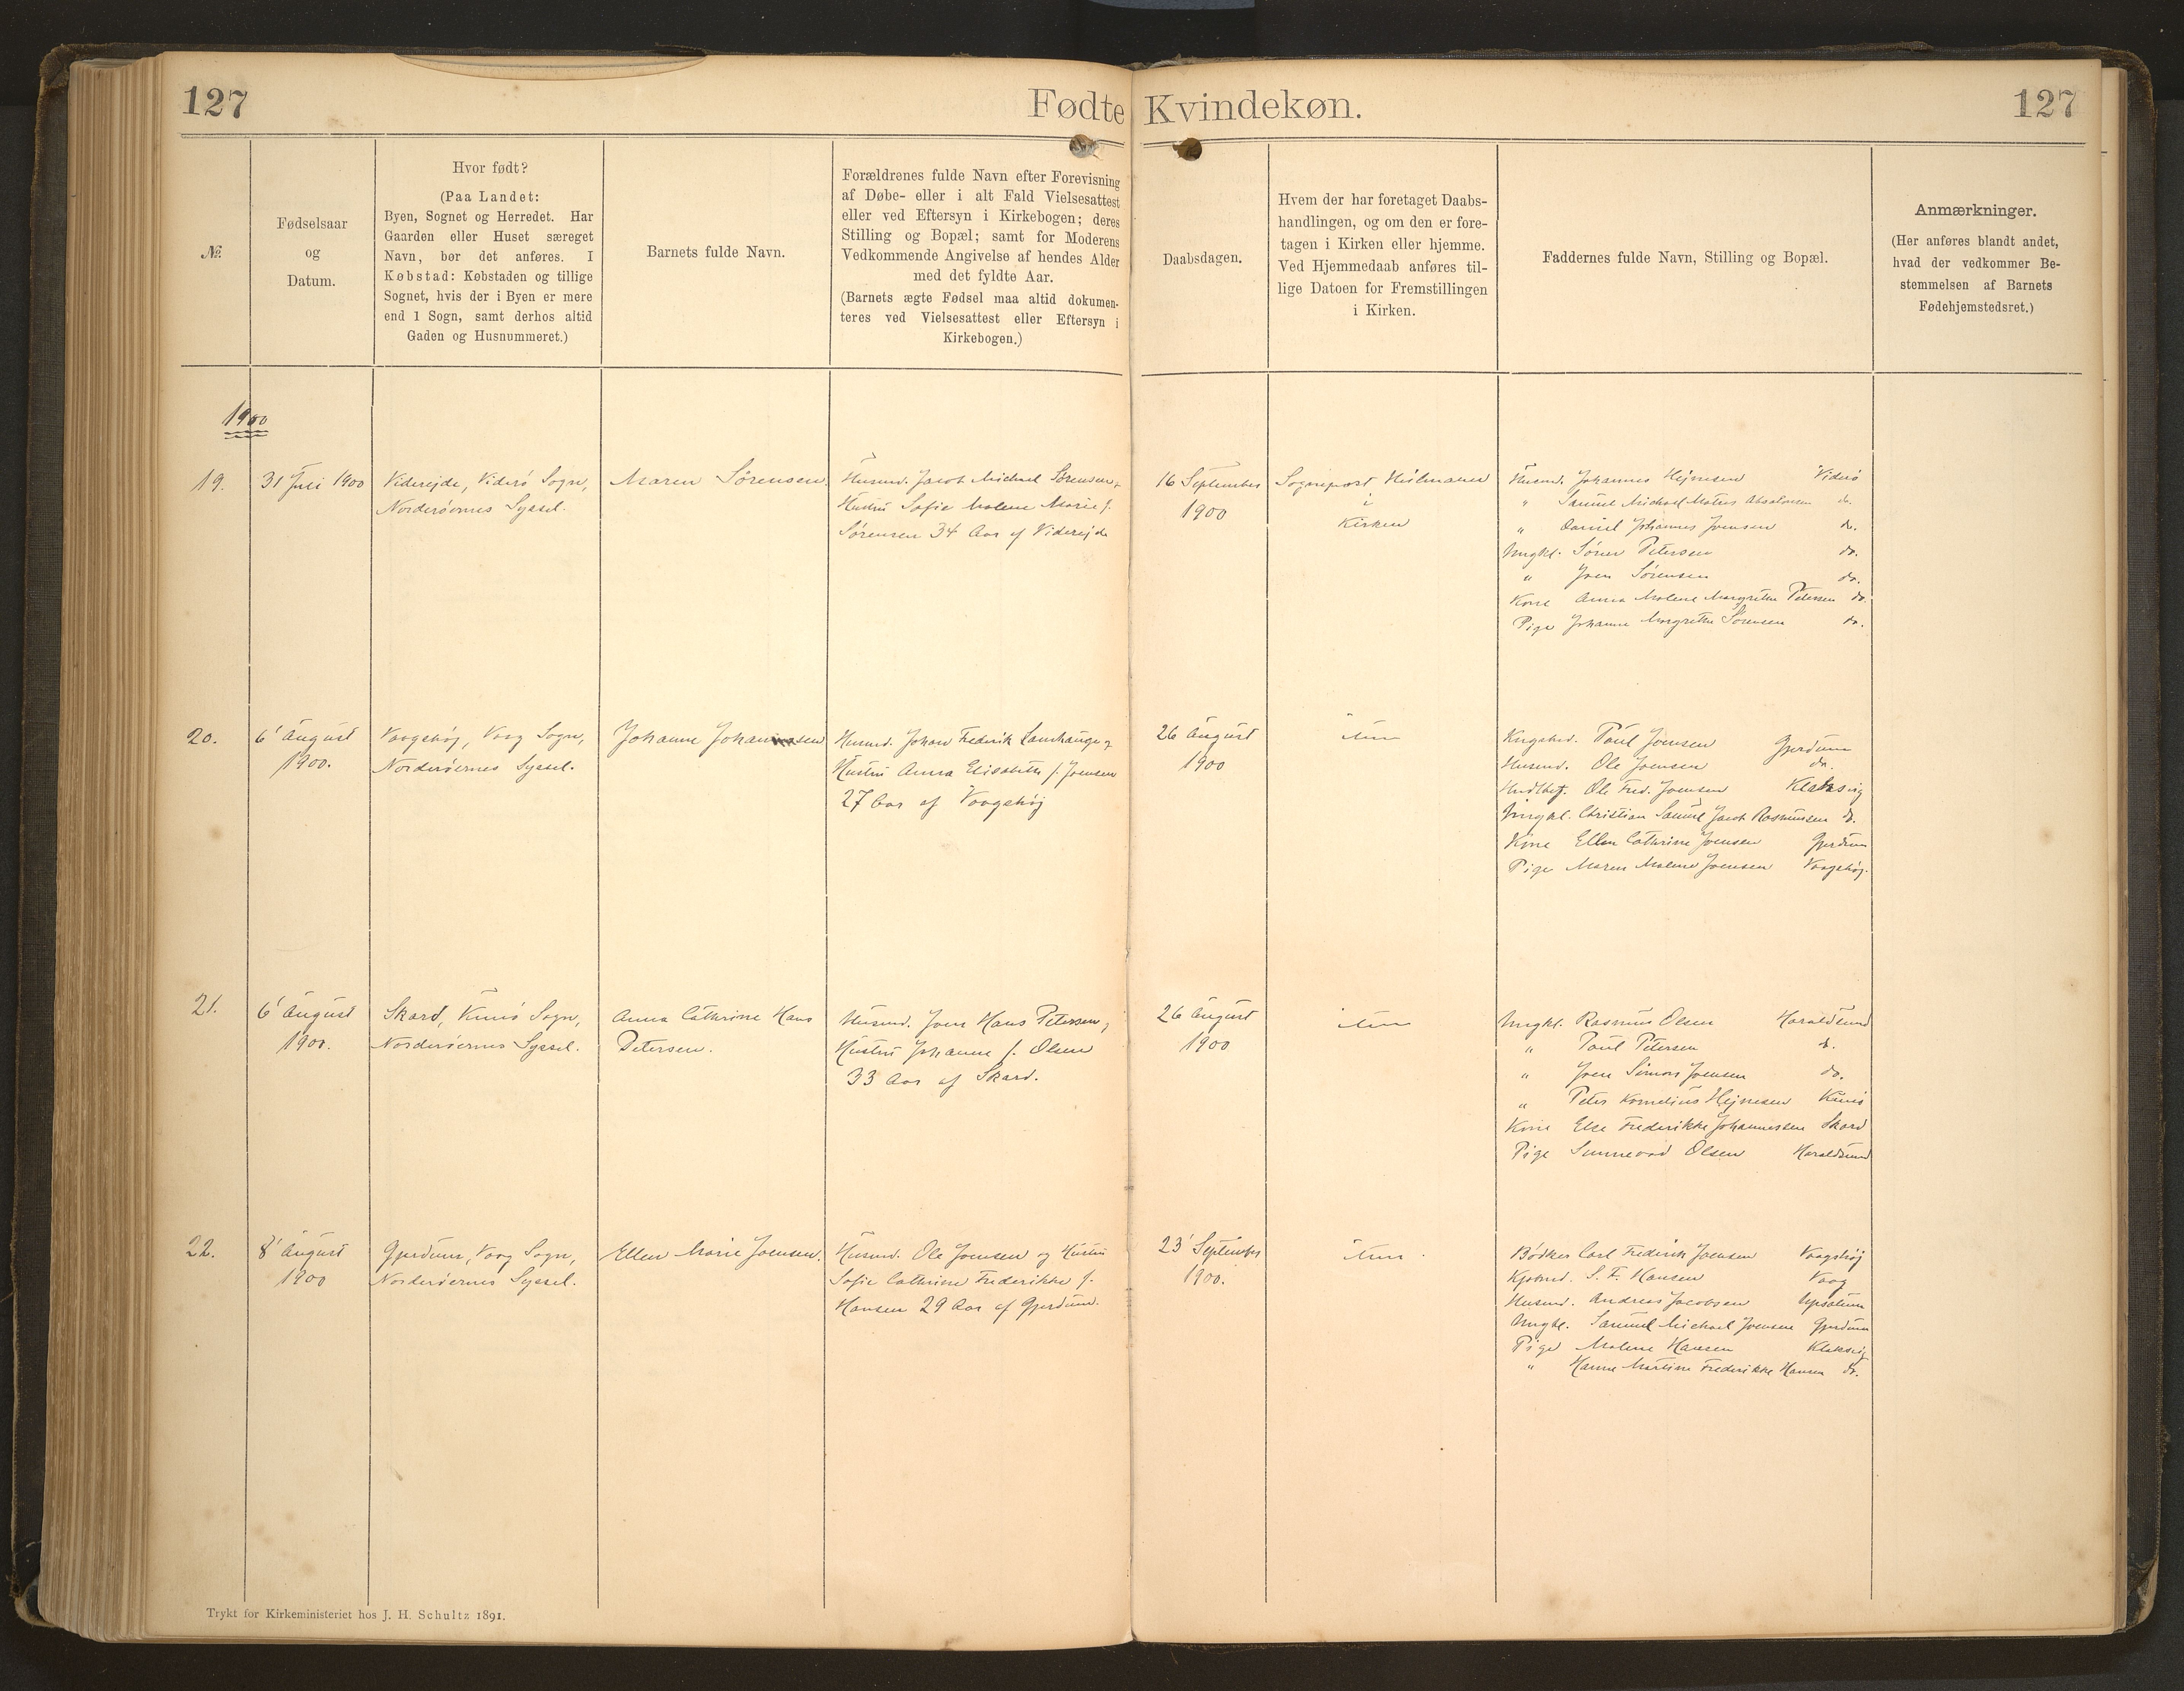 127
Fødte Kvindekøn.
127
№
Fødselsaar
og
Datum.
Hvor født?
(Paa Landet:
Byen, Sognet og Herredet. Har
Gaarden eller Huset særeget
Navn, bør det anføres. I
Købstad: Købstaden og tillige
Sognet, hvis der i Byen er mere
end 1 Sogn, samt derhos altid
Gaden og Husnummeret.)
Barnets fulde Navn.
Forældrenes fulde Navn efter Forevisning
af Døbe- eller i alt Fald Vielsesattest
eller ved Eftersyn i Kirkebogen; deres
Stilling og Bopæl; samt for Moderens
Vedkommende Angivelse af hendes Alder
med det fyldte Aar.
(Barnets ægte Fødsel maa altid dokumen-
teres ved Vielsesattest eller Eftersyn i
Kirkebogen.)
Daabsdagen.
Hvem der har foretaget Daabs-
handlingen, og om den er fore-
tagen i Kirken eller hjemme.
Ved Hjemmedaab anføres til-
lige Datoen for Fremstillingen
i Kirken.
Faddernes fulde Navn, Stilling og Bopæl.
Anmærkninger.
(Her anføres blandt andet,
hvad der vedkommer Be-
stemmelsen af Barnets
Fødehjemstedsret.)
1900
19.
31 Juli 1900
Viderejde, Viderø Sogn,
Norderøernes Syssel.
Maren Sørensen
Husmd. Jacob Michael Sørensen,
Hustru Sofie Malene Marie f.
Sørensen 34 Aar af Viderejde
16 September
1900
Sognepræst Heilmann
i
Kirken
Husmd. Johannes Hejnesen Viderø
" Samuel Michael Matias Absalonsen do.
" Daniel Johannes Joensen do.
Ungkl. Søren Petersen do.
" Joen Sørensen do.
Kone Anna Malene Margrethe Petersen do.
Pige Johanne Margrethe Sørensen do.
20.
6' August
1900.
Vaagshøj, Vaag Sogn,
Norderøernes Syssel.
Johanne Johannesen
Husmd. Johan Frederik Lamhauge,
Hustru Anna Elisabeth f. Joensen
27 Aar af Vaagshøj
26 August
1900
Paul Joensen Gjerdum
Husmd. Ole Joensen do.
Ole Fred. Joensen Klaksvig
Ungkl. Christian Samuel Jacob Rasmussen do.
Kone Ellen Cathrine Joensen Gjerdum
Pige Maren Malene Joensen Vaagshøj.
21.
6' August
1900.
Skard, Kunø Sogn,
Norderøernes Syssel.
Anna Cathrine Hans
Petersen.
Husmd. Joen Hans Petersen,
Hustru Johanne f. Olsen
33 Aar af Skard.
26 August
1900
Ungkl. Rasmus Olsen Haraldsund
" Paul Petersen do.
" Joen Simon Joensen do.
" Peter Kornelius Hejnesen Kunø
Kone Else Frederikke Johannessen Skard
Pige Sunnevad Olsen Haraldsund
22.
8' August
1900
Gjerdum, Vaag Sogn,
Norderøernes Syssel.
Ellen Marie Joensen.
Husmd. Ole Joensen og Hustru
Sofie Cathrine Frederikke f.
Hansen 29 Aar af Gjerdum.
23' September
1900.
Bødker Carl Frederik Joensen Vaagshøj
S. F. Hansen Vaag
Husmd. Andreas Jacobsen
Ungkl. Samuel Michael Joensen Gjerdum
Pige Malene Hansen Klaksvig
" Hanne Martine Frederikke Hansen do.
Trykt for Kirkeministeriet hos J. H. Schultz 1891.